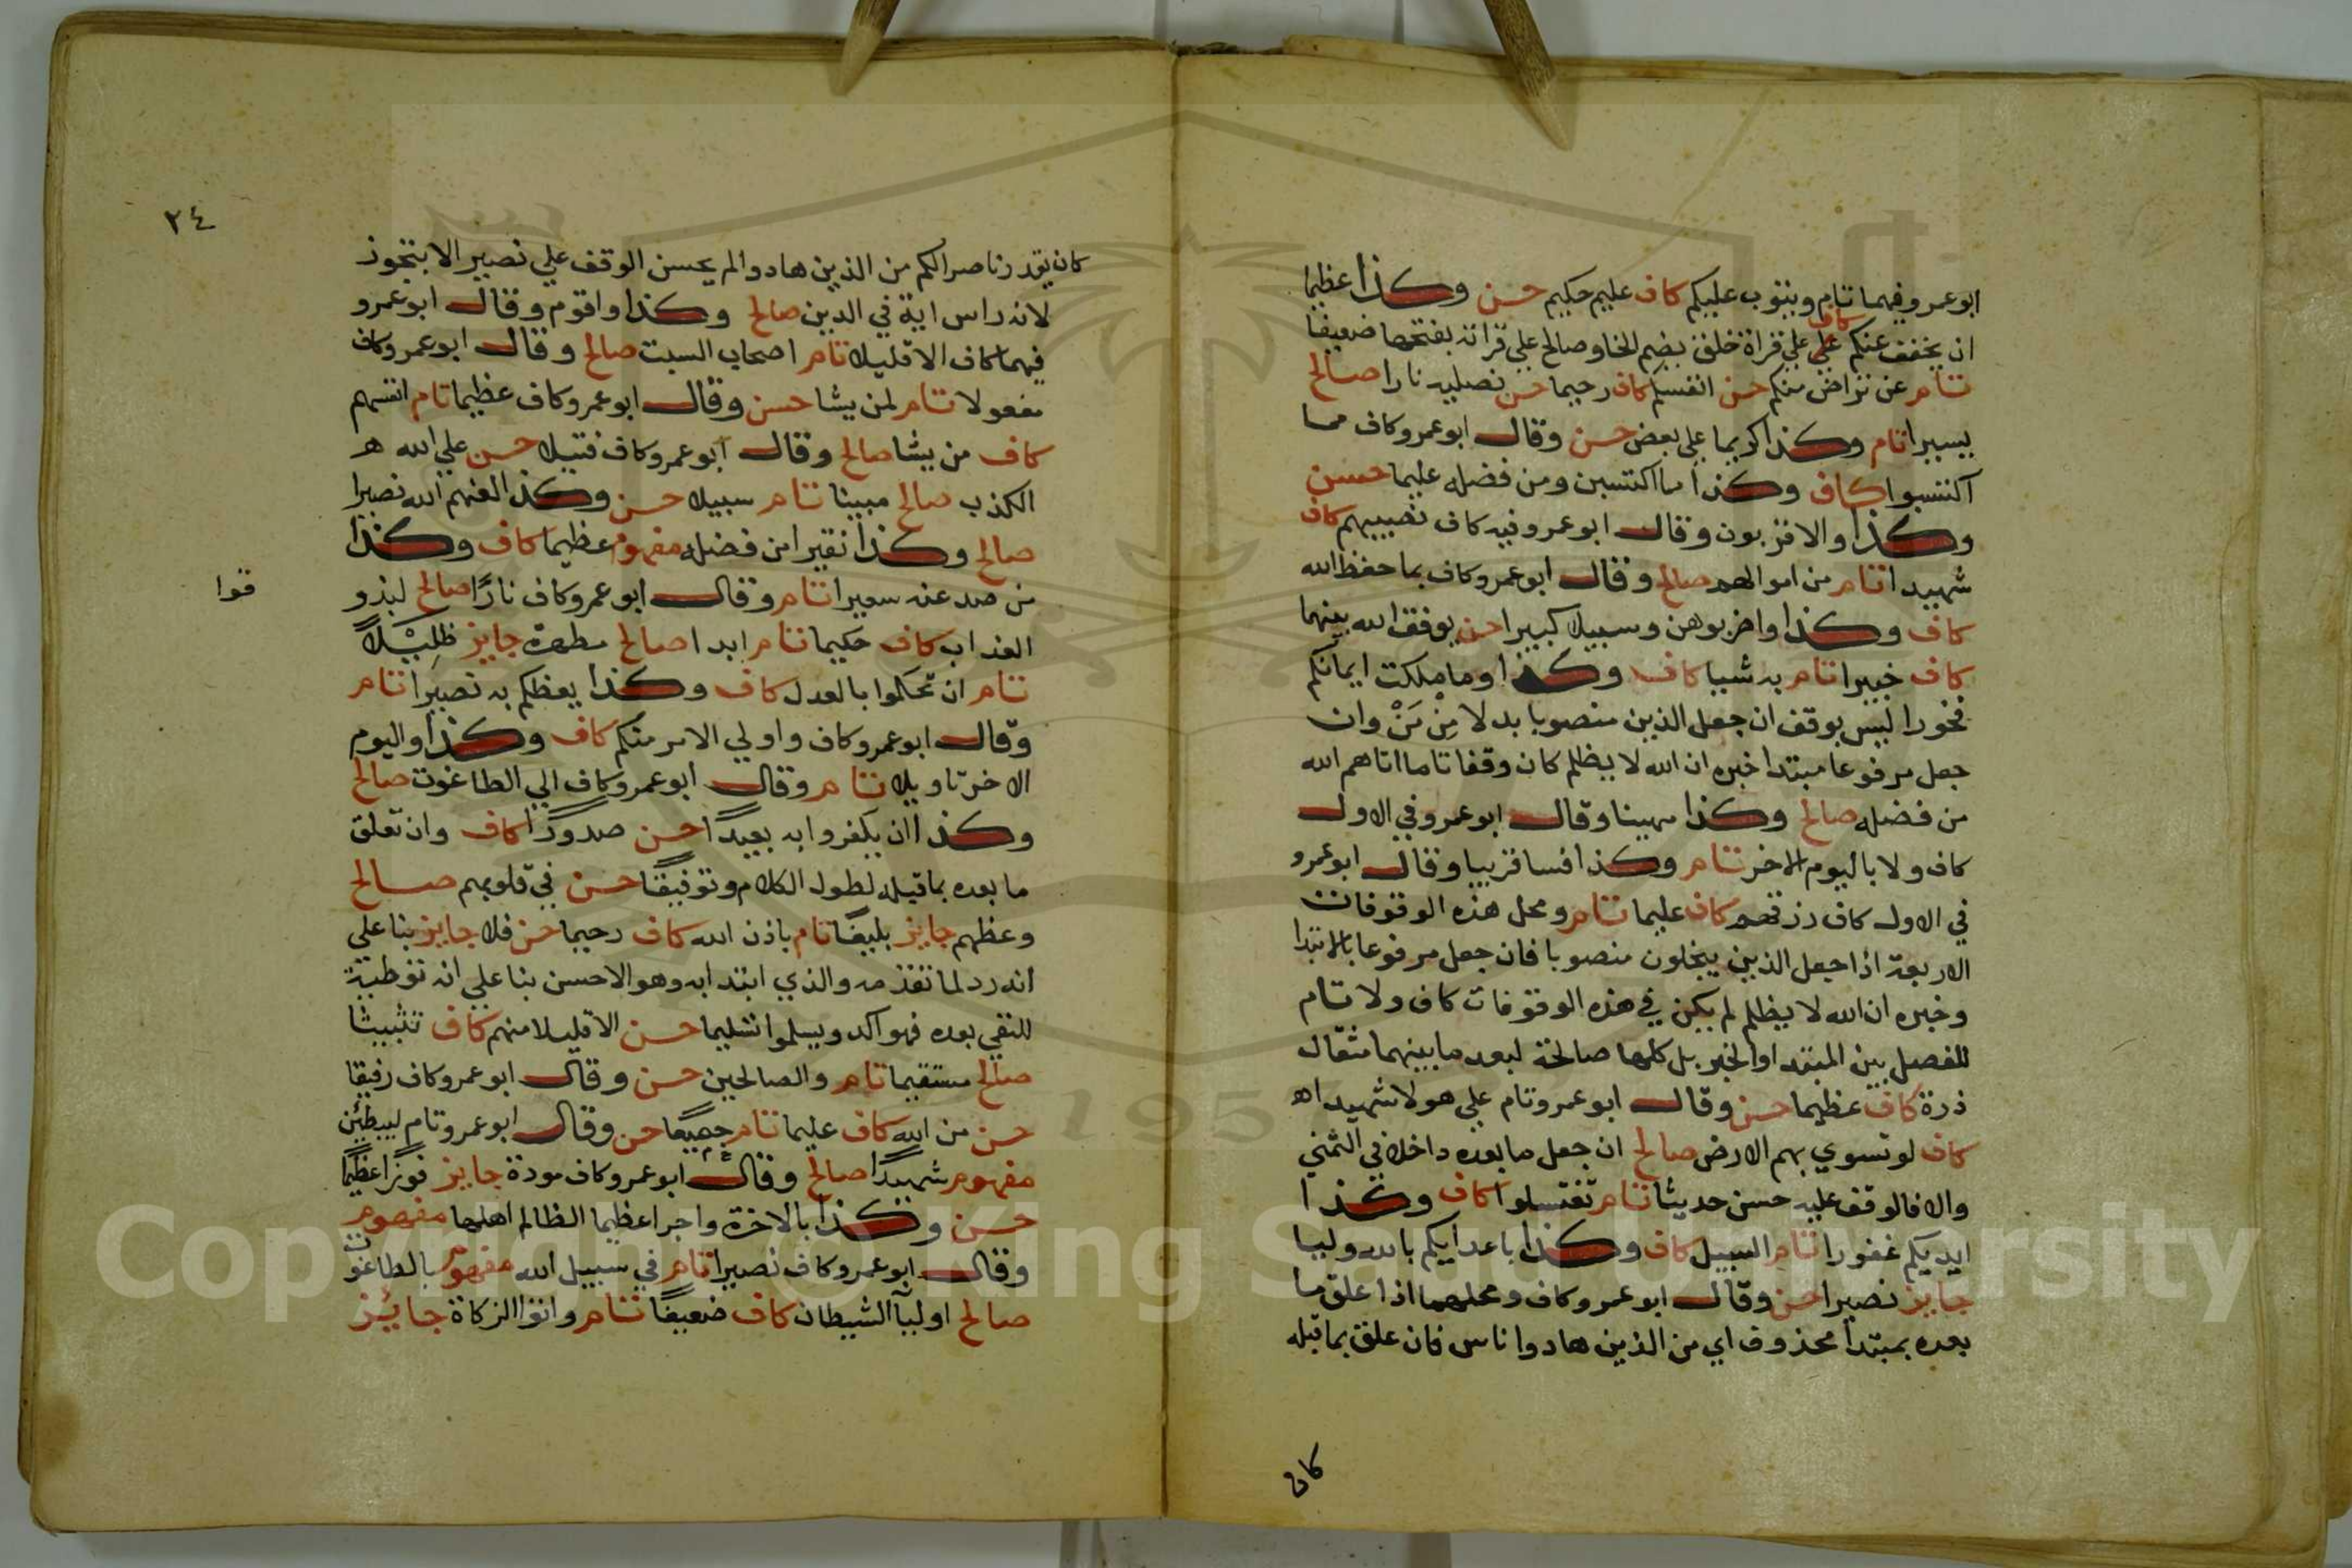 ابو عمرو فيهما تام ويتوب عليكم كاف عليم حكيم حسن وكذا عظيما
ان يخفف عنكم كاف علي قراة خلق بضم الخا وصالح علي قراته بفتحها ضعيفا
تام عن تراض منكم حسن انفسكم كاف رحيما حسن نصليه نارا صالح
يسيرا تام وكذا كريما علي بعض حسن وقال ابو عمرو كاف مما
اكتسبوا كاف وكذا مما اكتسبن ومن فضله عليما حسن
وكذا والاقربون وقال ابو عمرو فيه كاف نصيبهم كاف
شهيدا تام من اموالهم صالح وقال ابو عمرو كاف بما حفظ الله
كاف وكذا واضربوهن وسبيلا كبيرا حسن يوفق الله بينهما
كاف خبيرا تام به شيا كاف وكذا وما ملكت ايمانكم
فخورا ليس بوقف ان جعل الذين منصوبا بدلا مِنْ مَنْ وان
جعل مرفوعا مبتدا خبره ان الله لا يظلم كان وقفا تاما اتاهم الله
من فضله صالح وكذا مهينا وقال ابو عمرو في الاول
كاف ولا باليوم الاخر تام وكذا فسا قريبا وقال ابو عمرو
في الاول كاف رزقهم كاف عليما تام ومحل هذه الوقوفات
الاربعة اذا جعل الذين يبخلون منصوبا فان جعل مرفوعا بالابتدا
وخبره ان الله لا يظلم لم يكن في هذه الوقوفات كاف ولا تام
للفصل بين المبتدا والخبر بل كلها صالحة لبعد ما بينهما مثقال
ذرة كاف عظيما حسن وقال ابو عمرو تام علي هولا شهيدا ه
كاف لو تسوي بهم الارض صالح ان جعل ما بعده داخلا في التمني
والا فالوقف عليه حسن حديثا تام تغتسلوا كاف وكذا
ايديكم غفورا تام السبيل كاف وكذا باعدايكم بالله وليا
جايز نصيرا حسن وقال ابو عمرو كاف ومحلهما اذا علق ما
بعده بمبتدا محذوف اي من الذين هادوا ناس فان علق بما قبله
كان
٢٤
كان يقدر ناصرا لكم من الذين هادوا لم يحسن الوقف علي نصيرا الا بتجوز
لانه راس اية في الدين صالح وكذا واقوم وقال ابو عمرو
فيهما كاف الا قليلا تام اصحاب السبت صالح وقال ابو عمرو كاف
مفعولا تام لمن يشا حسن وقال ابو عمرو كاف عظيما تام انفسهم
كاف من يشا صالح وقال ابو عمرو كاف فتيلا حسن علي الله ه
الكذب صالح مبينا تام سبيلا حسن وكذا لعنهم الله نصيرا
صالح وكذا نقيرا من فضله مفهوم عظيما كاف وكذا
من صد عنه سعيرا تام وقال ابو عمرو كاف نارًا صالح ليذو
قوا
العذاب كاف حكيما تام ابدا صالح مطهرة جايز ظليلًا
تام ان تحكموا بالعدل كاف وكذا يعظكم به نصيرا تام
وقال ابو عمرو كاف واولي الامر منكم كاف وكذا واليوم
الاخر تاويلا تام وقال ابو عمرو كاف الي الطاغوت صالح
وكذا ان يكفروا به بعيدًا حسن صدودًا كاف وان تعلق
ما بعده بما قبله لطول الكلام وتوفيقًا حسن في قلوبهم صالح
وعظهم جايز بليغًا تام باذن الله كاف رحيما حسن فلا جايز بنا علي
انه رد لما تقدمه والذي ابتدا به وهو الاحسن بنا علي انه توطية
للنفي بعده فهو اكد ويسلموا تسليما حسن الا قليلا منهم كاف تثبيتا
صالح مستقيما تام والصالحين حسن وقال ابو عمرو كاف رفيقا
حسن من الله كاف عليما تام جميعًا حسن وقال ابو عمرو تام ليبطئن
مفهوم شهيدًا صالح وقال ابو عمرو كاف مودة جايز فوزًا عظيمًا
حسن وكذا بالاخرة واجرا عظيما الظالم اهلها مفهوم
وقال ابو عمرو كاف نصيرا تام في سبيل الله مفهوم بالطاغوت
صالح اوليآ الشيطان كاف ضعيفًا تام واتوا الزكاة جايز
Copyright © King Saud University
195